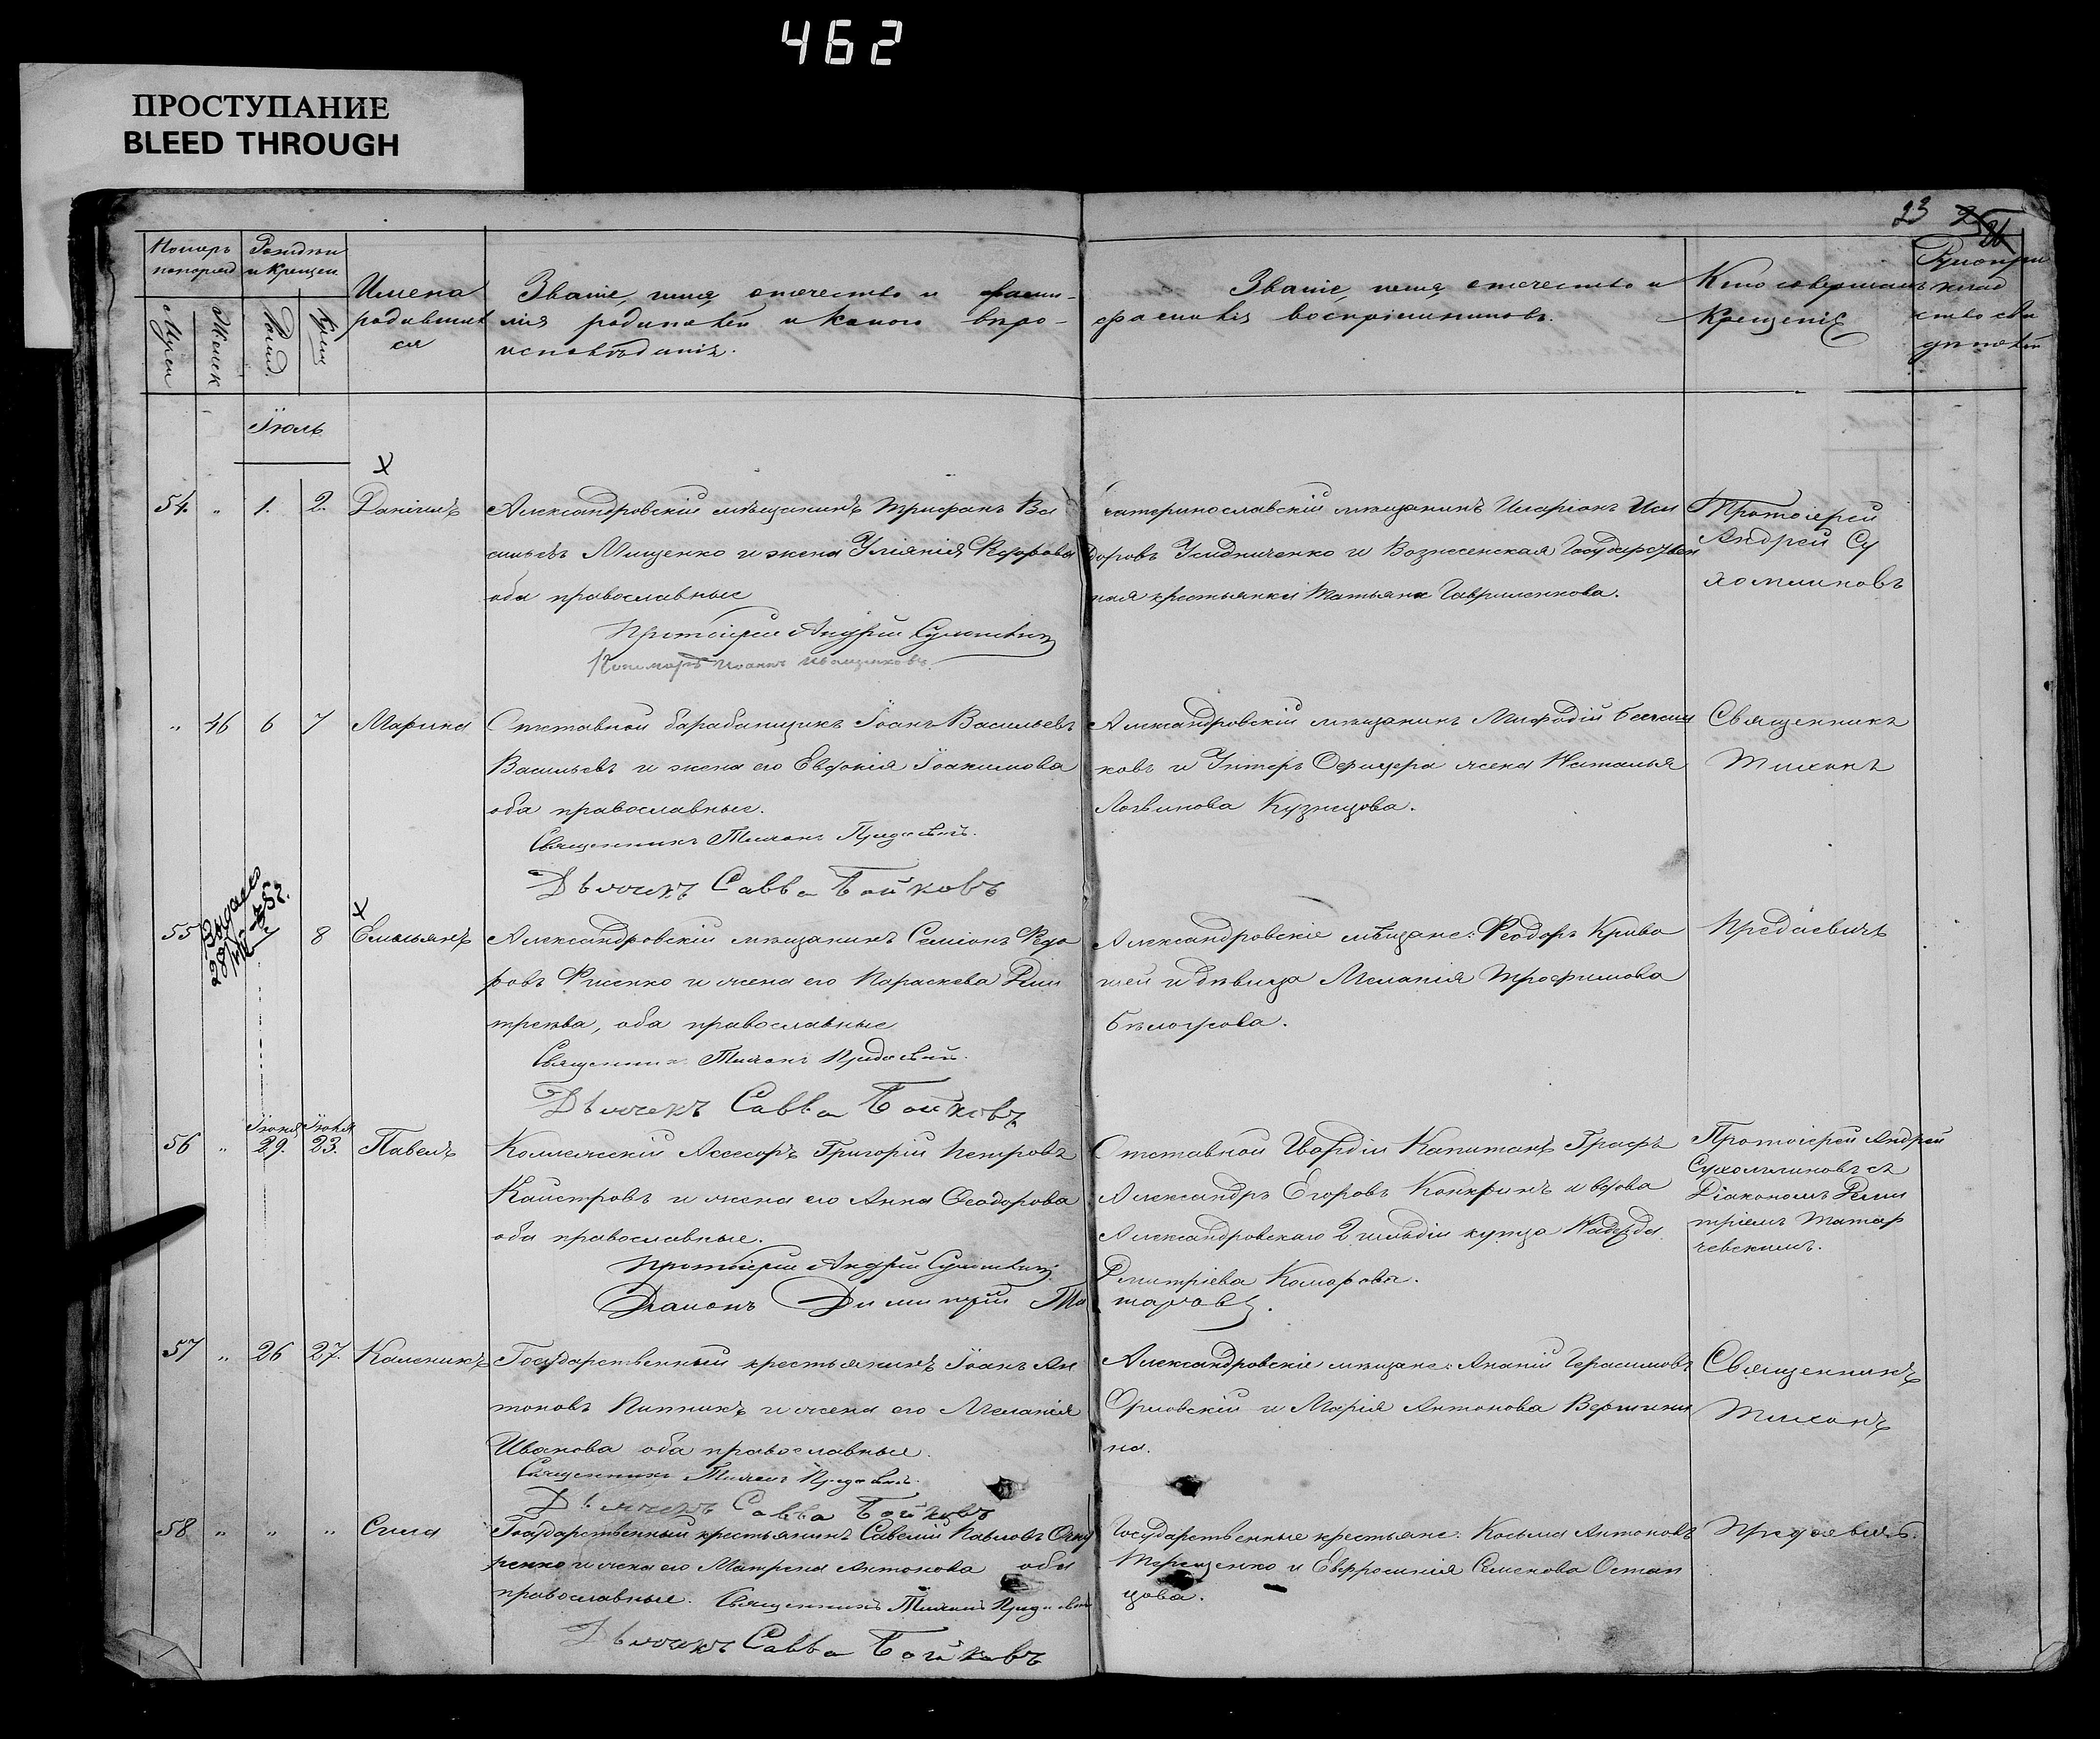 462
ПРОСТУПАНИЕ
BLEED THROUGH
23
26
Номеръ
Имена
родивших
ся
Званіе, имя, отечество и фами-
лія родителей и какого вѣро-
исповѣданія.
Званіе, имя, отечество и
фамилія воспріемниковъ.
Кто совершалъ
Крещеніе
Рукопри
клад
ство сви
дѣтелей
Іюль
54. " 1. 2. Даніилъ
Александровскій мѣщанинъ Трифанъ Ва
сильевъ Мищенко и жена Уліянія
оба православные
Протоіерей Андрей Сухомлинов
катеринославскій мѣщанинъ Иларіонъ Иси
доровъ и Вознесенская Государствен
ная крестьянка Татьяна Гавриленкова.
Протоіерей
Андрей Су
хомлиновъ
" 46 6 7 Марина
Отставной барабанщикъ Іоанъ Васильевъ
Васильевъ и жена его Евдокія Іоакимова
оба православные.
Священникъ Тихонъ
Дьячекъ Савва Бойковъ
Александровскій мѣщанинъ Мефодій
ковъ и Унтеръ Офицера жена Наталья
Логвинова Кузнецова.
Священникъ
Тихонъ
55 8 Емельянъ
Александровскій мѣщанинъ Семіонъ Федо
ровъ Фисенко и жена его Параскева Дми
тріева, оба православные
Священникъ Тихонъ
Дьячекъ Савва Бойковъ
Александровскіе мѣщане: Феодоръ Криво
шей и дѣвица Меланія Трофимова
Предаевичъ
56 " Іюня 29. Іюня 23. Павелъ
Коллежскій Асессоръ Григорій Петровъ
Каистровъ и жена его Анна Феодорова
оба православные.
Протоіерей Андрей Сухомлинов
Диаконъ Димитрій Та
Отставной Гвардіи Капитанъ Графъ
Александръ Егоровъ Канкринъ и вдова
Александровскаго 2 гильдіи купца Надежда
Дмитріева Комарова.
Протоіерей Андрей
Сухомлиновъ съ
Діакономъ Дими
тріемъ Татар
чевскимъ.
57 " 26 27. Каленикъ
Государственный крестьянинъ Іоанъ Ан
тоновъ Питникъ и жена его Меланія
Иванова оба православные.
Священникъ Тихонъ
Дьячекъ Савва Бойковъ
Александровскіе мѣщане: Ананій Герасимовъ
Орловскій и Марія Антонова Вершини
на.
Священникъ
Тихонъ
58 " " " Сила
Государственный крестьянинъ Савелій Павловъ
ренко и жена его Матрена Антонова оба
православные. Священникъ Тихонъ
Дьячекъ Савва Бойковъ
Государственные крестьяне: Косьма Антоновъ
Терещенко и Евфросинія Семенова Остап
цова.
Предаевичъ.